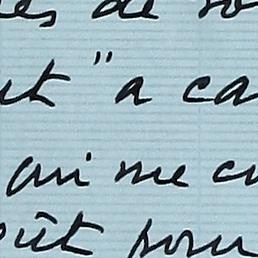 es de so
ut "a ca
qui me cu
oût pour